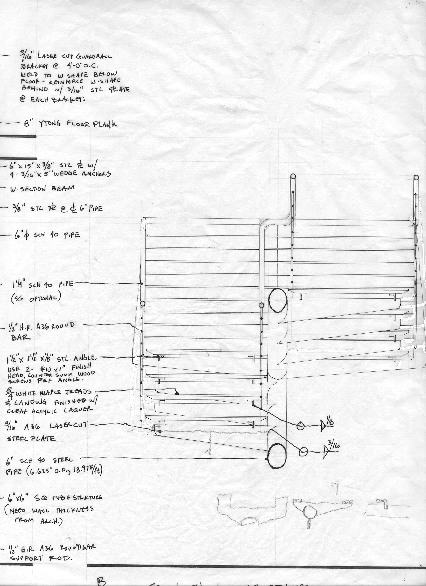 3/16" LASER CUT GUARDRAIL
BRACKET @ 4'-0" O.C.
WELD TO W SHAPE BELOW
FLOOR - REINFORCE W-SHAPE
BEHIND W/ 3/16" STL PLATE
@ EACH BRACKET.
8" YTONG FLOOR PLANK
6" x 15" x 3/8" STL PL W/
4 - 3/16" x 5" WEDGE ANCHORS
W-SECTION BEAM
3/8" STL PL @ 6" PIPE
6" ϕ SCH 40 PIPE
1 1/4" SCH 40 PIPE
(SS OPTIONAL)
1/2" H.R. A36 ROUND
BAR
1 1/2" x 1 1/2" x 1/8" STL ANGLE.
USE 2- #10 x 1" FINISH
HEAD, COUNTER SUNK WOOD
SCREWS PER ANGLE.
WHITE MAPLE TREADS
& LANDING FINISHED W/
CLEAR ACRYLIC LAQUER
3/16" A36 LASER CUT
STEEL PLATE
1/8
3/16
6" SCH 40 STEEL
PIPE (6.625" O.D.
6" x 6" SQ TUBE STRUCTURE
(NEED WALL THICKNESS
FROM ARCH.)
1/2" H.R. A36 ROUND BAR
SUPPORT ROD.
B